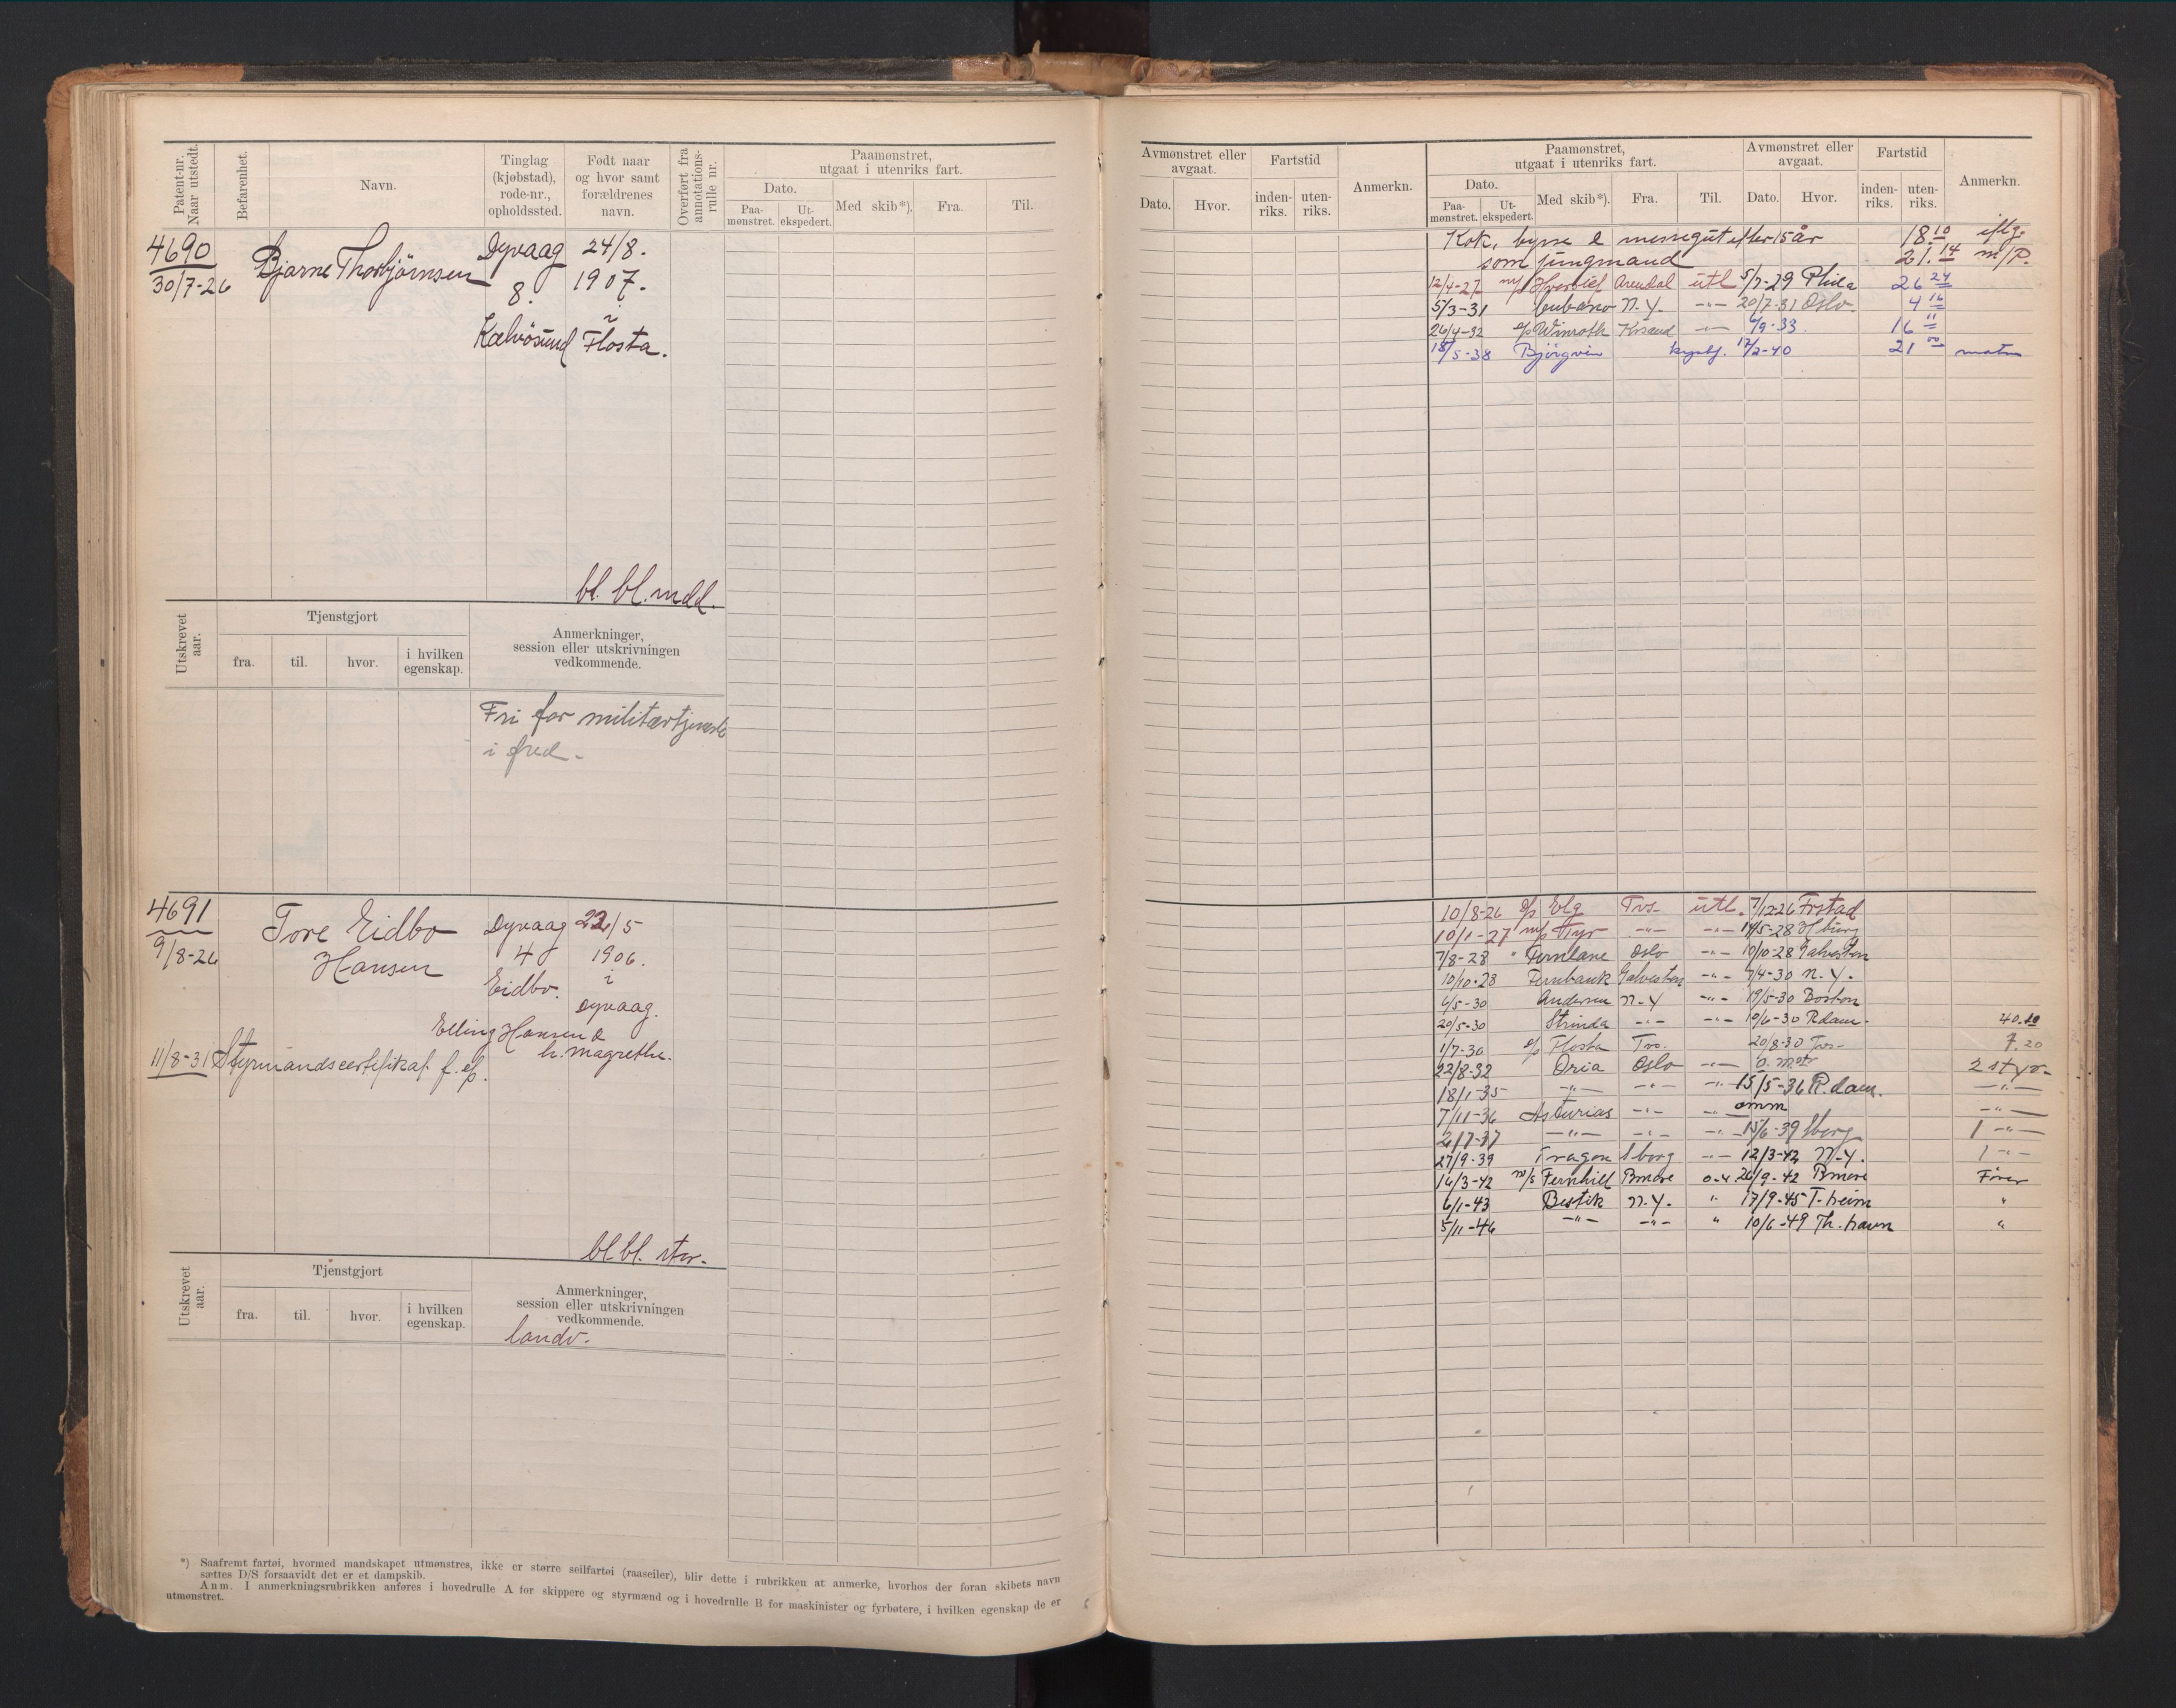 Patent-nr. Naar utstedt.
Befarenhet.
Navn.
Tinglag (kjøbstad), rode-nr., opholdssted.
Født naar og hvor samt forældrenes navn.
Overført fra annotations-rulle nr.
Paamønstret, utgaat i utenriks fart.
Dato.
Paa-mønstret.
Ut-ekspedert.
Med skib*).
Fra.
Til.
4690
30/7-26
Bjarne Thorbjörnsen
Dyvaag
8.
Kalvösund
24/8.
1907.
Flosta.
bl. bl. mdd.
Utskrevet aar.
Tjenstgjort
fra.
til.
hvor.
i hvilken egenskap.
Anmerkninger, session eller utskrivningen vedkommende.
Fri for militærtjeneste
i fred.
4691
9/8-26
Tore Eidbo
Hansen
Dyvaag
4
Eidbo.
22/5
1906.
i
Dyvaag.
Elling Hansen &
h. Magrethe.
11/8-31 Styrmandscertifikat f. d/s.
bl. bl. stor.
Utskrevet aar.
Tjenstgjort
fra.
til.
hvor.
i hvilken egenskap.
Anmerkninger, session eller utskrivningen vedkommende.
landv.
*) Saafremt fartøi, hvormed mandskapet utmønstres, ikke er større seilfartøi (raaseiler), blir dette i rubrikken at anmerke, hvorhos der foran skibets navn
sættes D/S forsaavidt det er et dampskib.
Anm. I anmerkningsrubrikken anføres i hovedrulle A for skippere og styrmænd og i hovedrulle B for maskinister og fyrbøtere, i hvilken egenskap de er
utmønstret.
Avmønstret eller avgaat.
Dato.
Hvor.
Fartstid
inden-riks.
uten-riks.
Anmerkn.
Paamønstret, utgaat i utenriks fart.
Dato.
Paa-mønstret.
Ut-ekspedert.
Med skib*).
Fra.
Til.
Avmønstret eller avgaat.
Dato.
Hvor.
Fartstid
inden-riks.
uten-riks.
Anmerkn.
Kok, bysse & messegut efter 15 år 18.10 iflg.
som jungmand 21.14 m/P.
12/4-27 Arendal utl 5/7-29 Phila 26 24
5/3-31 Cubano N.Y. -"- 20/7-31 Oslo 4 16
26/4-32 Winroth Krsand -"- 6/9-33. 16 11
18/5-38 Björgvin kystf. 12/2-40 21 00 matr
10/8-26 d/s Elg Tvs. utl. 7/12-26 Frstad
10/1-27 m/s Tyr -"- -"- 14/5-28 Hburg
7/8-28 " Fernlane Oslo -"- 10/10-28 Galveston
10/10-28 Fernbank Galveston -"- 7/4-30 N.Y.
6/5-30 N.Y -"- 19/5-30 Boston
20/5-30 Strinda -"- -"- 10/6-30 Rdam. 40.10
1/7-30 d/s Flosta Tvs. 20/8-30 Tvs. 7.20
22/8-32 Oria Oslo -"- 2 styr.
18/1-35 -"- -"- -"- 15/5-36 R.dam. -"-
7/11-36 Asturias -"- -"- omm -"-
2/7-37 -"- -"- -"- 15/6-39 Sberg 1 -"-
27/9-39 Tragon Sborg -"- 12/3-42 N.Y. 1 -"-
16/3-42 m/s Fernhill Bmore 26/9-42 Bmore Fører
6/1-43 Bestik N.Y. " 17/9-45 T.heim "
5/11-46 -"- -"- " 10/6-49 Th.havn "